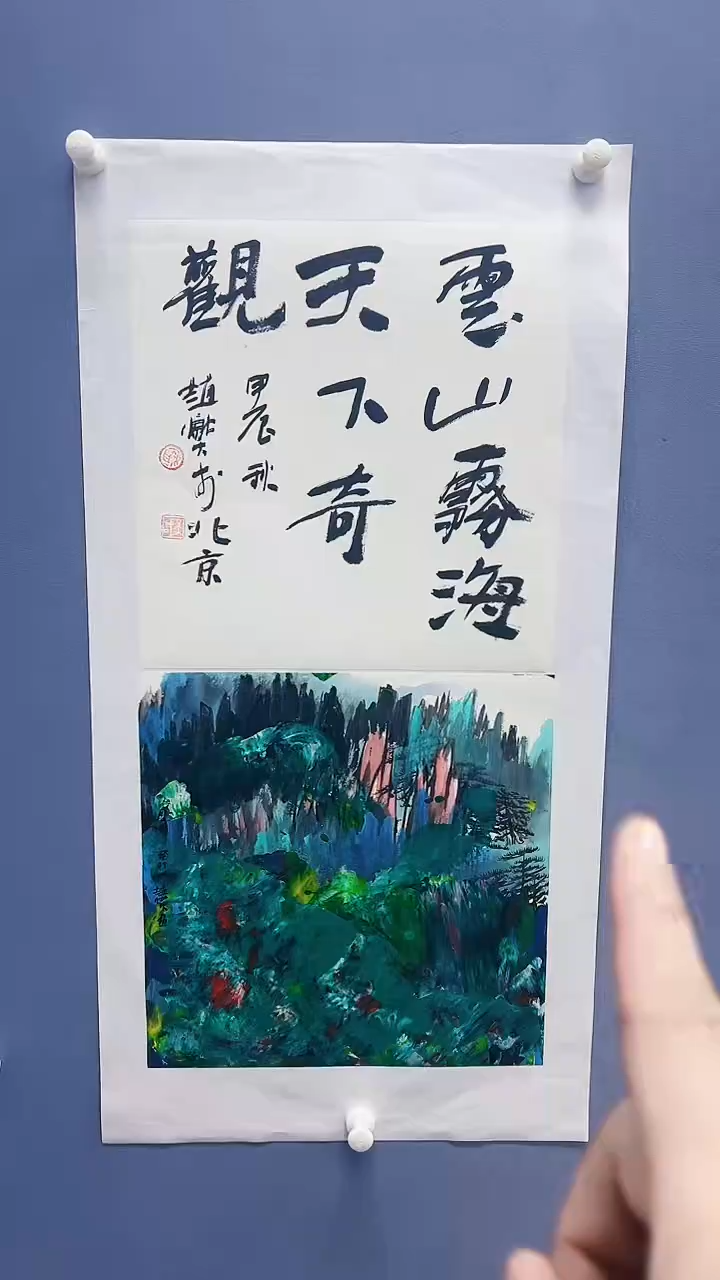 雲山霧海
天下奇
觀
甲辰秋
趙樂於北京